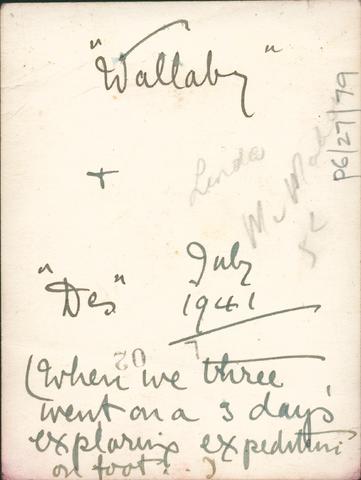 "Wallaby"
+
"Des" July
1941
(When we three
went on a 3 days
exploring expedition
on foot. )
Linda
P6/27/79
02